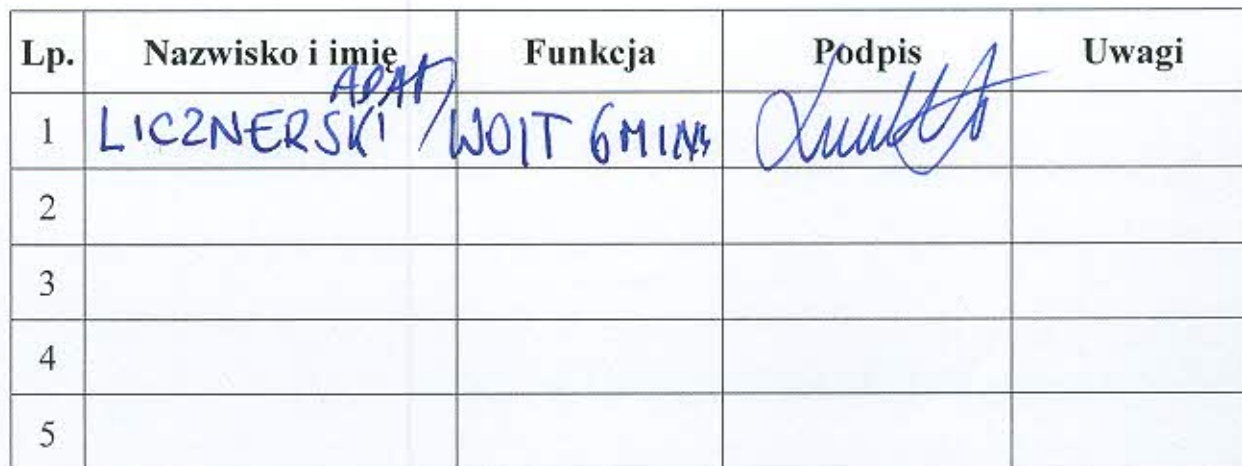 Lp. Nazwisko i imię Funkcja Podpis Uwagi
ADAM
1 LICZNERSKI WOJT GMINY
2
3
4
5